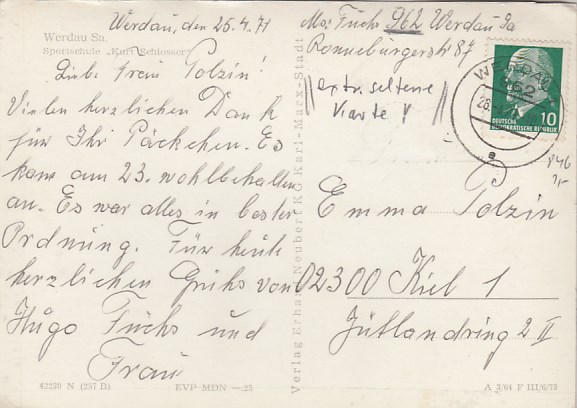 Werdau, den 25.4.71
Abs. Fuchs 962 Werdau Sa
Ronneburgerstr 87
Werdau Sa.
Sportschule „Kurt Schlosser"
Liebe Frau Polzin!
Vielen herzlichen Dank
für Ihr Päckchen. Es
kam am 23. wohlbehalten
an. Es war alles in bester
Ordnung. Für heute
herzlichen Gruß von
Hugo Fuchs und
Frau
42230 N (257 B)
EVP MDN —.25
Verlag Erhard Neubert KG Karl-Marx-Stadt
extr. seltene
Karte!
WERDAU
962
a
10
DEUTSCHE
DEMOKRATISCHE REPUBLIK
Emma Polzin
02300 Kiel 1
Jütlandring 2 II
A 3/64 F III/6/73